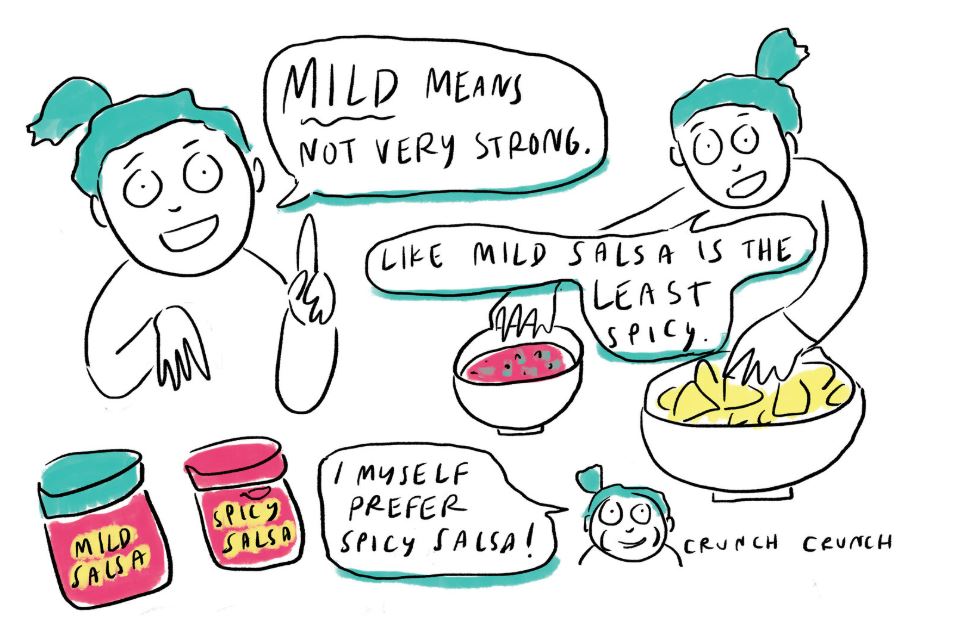 MILD MEANS
NOT VERY STRONG.
LIKE MILD SALSA IS THE
LEAST
SPICY.
MILD
SALSA
SPICY
SALSA
I MYSELF
PREFER
SPICY SALSA!
CRUNCH CRUNCH